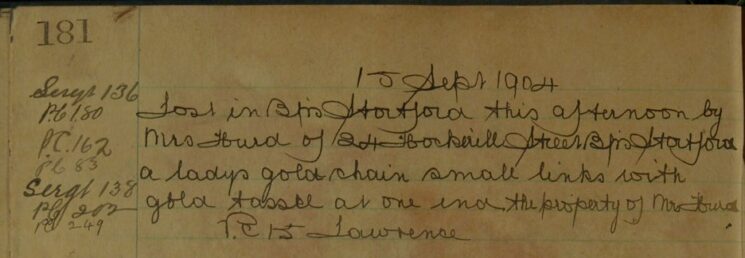 181
15 Sept 1904
Sergt 136
PC 180
PC. 162
PC 83
Sergt 138
PC 202
PC 249
Lost in Bps Stortford this afternoon by
Mrs Hurd of 24 Hockerill Street Bps Stortford
a ladys gold chain small links with
gold tassel at one end. the property of Mrs Hurd
P.C 15 Lawrence